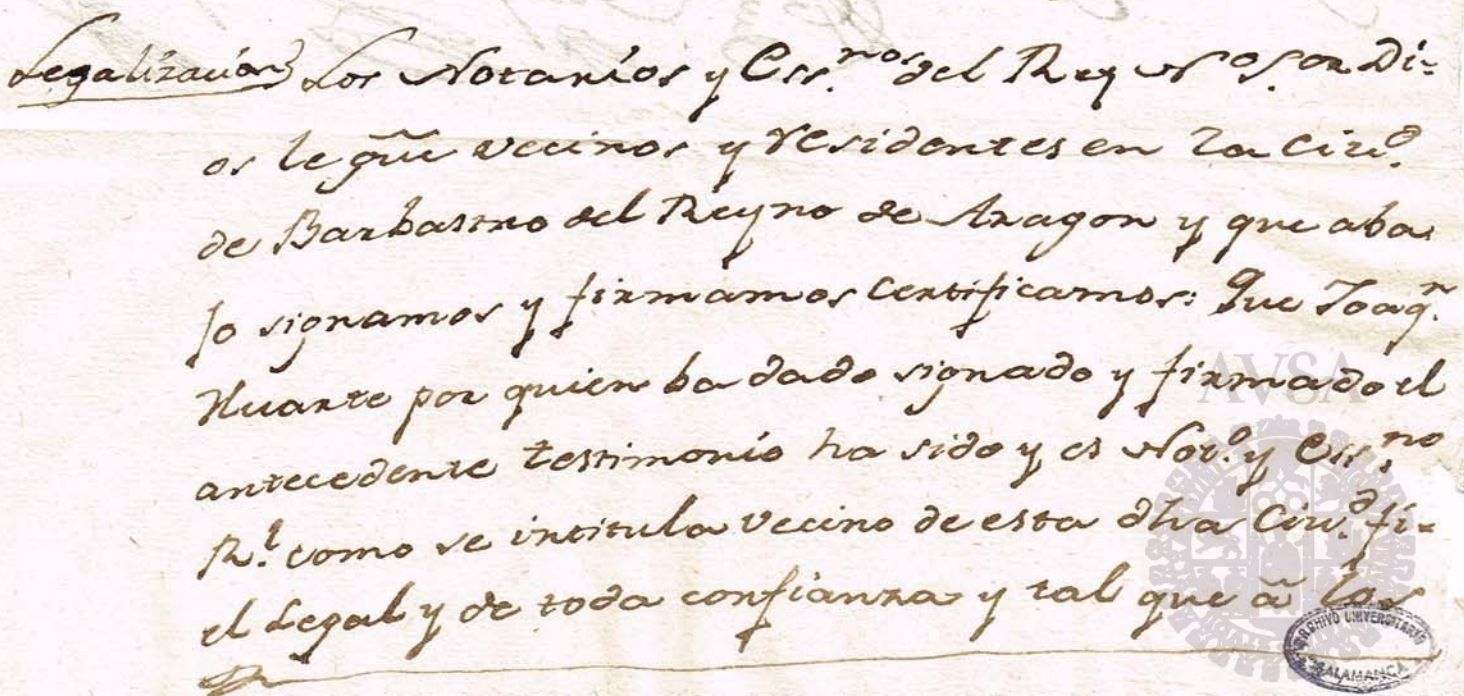 Legalizacion Los Notarios y Ess.nos del Rey N.o S.or Di=
os le gũe vecinos y residentes en la Ciu.d
de Barbastro del Reyno de Aragon y que aba=
jo signamos y firmamos Certificamos: Que Joaq.n
Huarte por quien ba dado signado y firmado el
antecedente testimonio ha sido y es Not.o y Ess.no
R.l como se intitula vecino de esta dha Ciu.d fi=
el Legal y de toda confianza y tal que â los
AVSA
ARCHIVO UNIVERSITARIO
SALAMANCA